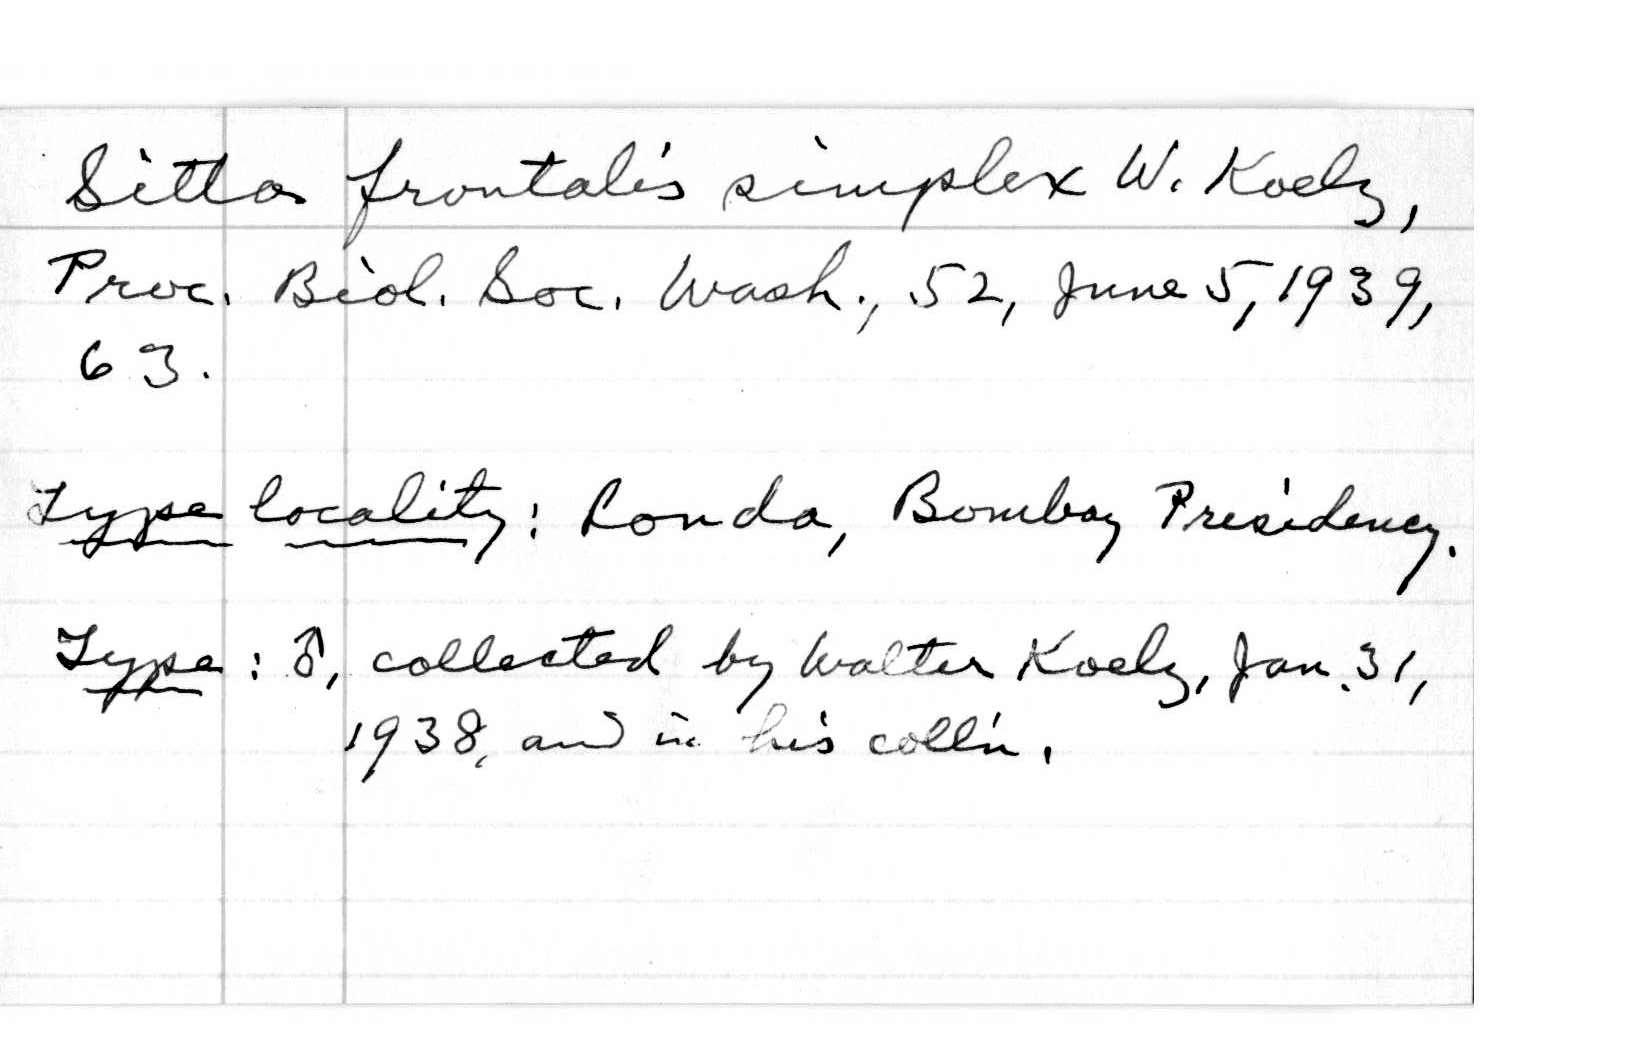 Sitta frontalis simplex W. Koelz,
Proc. Biol. Soc. Wash., 52, June 5, 1939,
63.
Type locality: Londa, Bombay Presidency.
Type: ♂, collected by Walter Koelz, Jan. 31,
1938, and in his coll'n.